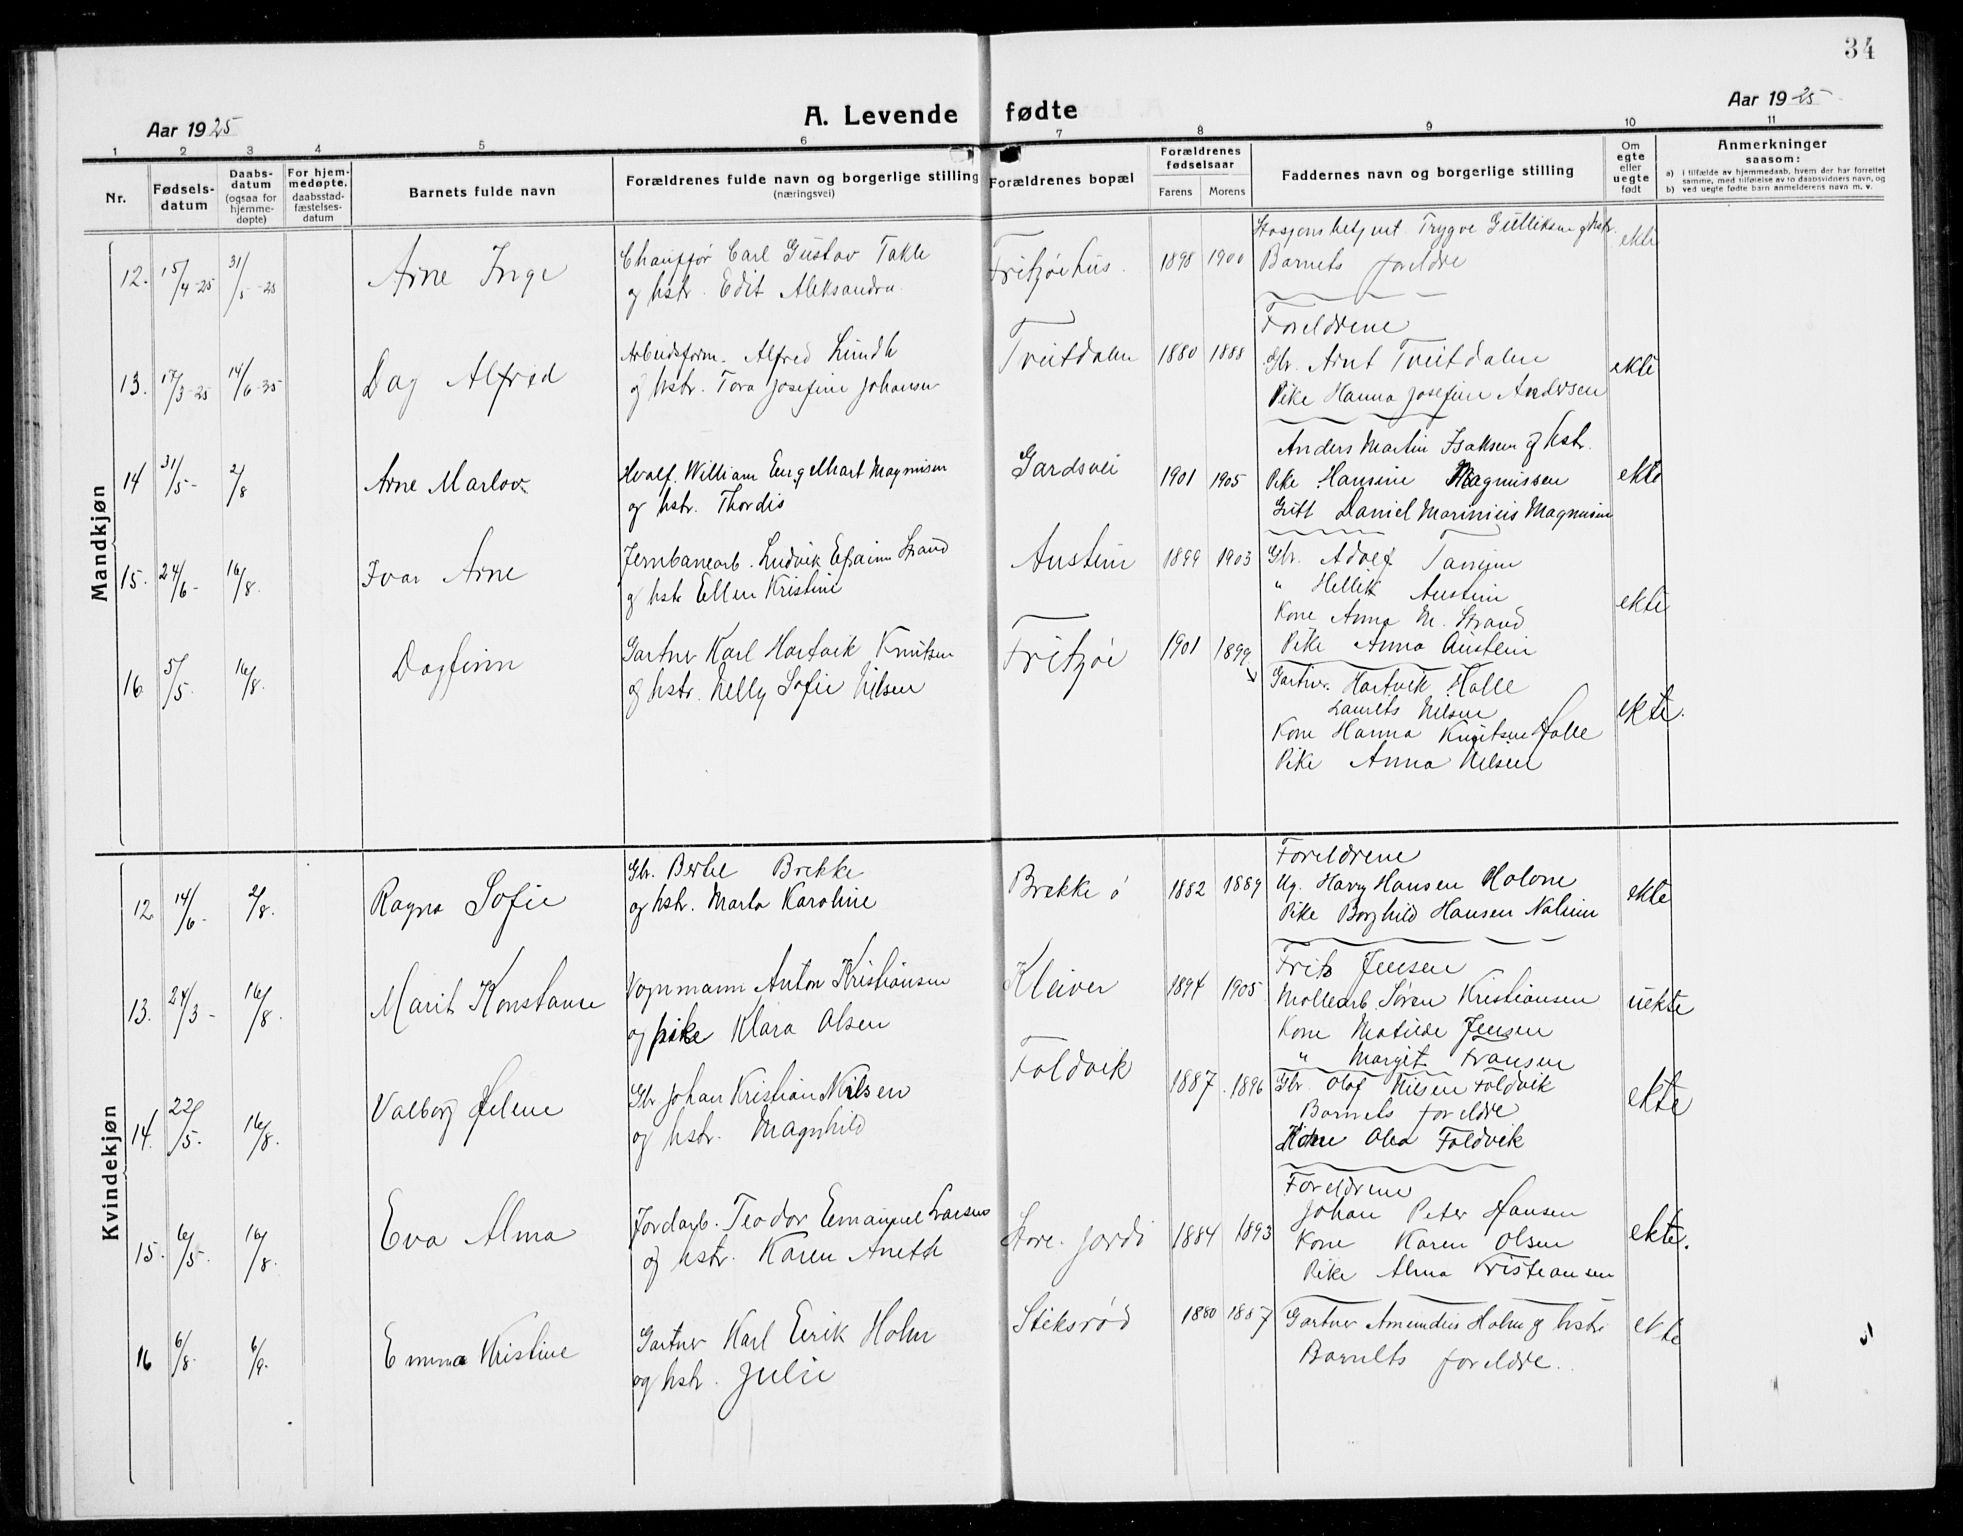 34
Aar 1925
A. Levende fødte
Aar 1925
1 2 3 4 5 6 7 8 9 10 11
Nr.
Fødsels-
datum
Daabs-
datum
(ogsaa for
hjemme-
døpte)
For hjem-
medøpte,
daabsstad-
fæstelses-
datum
Barnets fulde navn
Forældrenes fulde navn og borgerlige stilling
(næringsvei)
Forældrenes bopæl
Forældrenes
fødselsaar
Farens Morens
Faddernes navn og borgerlige stilling
Om
egte
eller
uegte
født
Anmerkninger
saasom:
a) i tilfælde av hjemmedaab, hvem der har forrettet
samme, med tilføielse av to daabsvidners navn, og
b) ved uegte fødte barn anmelderens navn m. v.
Mandkjøn
12. 15/4-25 31/5-25 Arne Inge
Chauffør Carl Gustav Takle
og hstr. Edit Aleksandra
Fritzøehus. 1898 1900
Trygve Gulliksen og hstr.
Barnets foreldre
ekte
13. 17/3-25 14/6-35 Dag Alfred
Arbeidsform. Alfred Lundh
og hstr. Tora Josefine Johansen
Tveitdalen 1880 1888
Foreldrene
Gbr. Arnt Tveitdalen
Pike Hanna Josefine Andersen
ekte
14 31/5- 2/8 Arne Marlov
Hvalf. William Engelhart Magnusen
og hstr. Thordis
Gardsvei 1901 1905
Anders Martin Isaksen og hstr.
Pike Hansine Magnussen
Daniel Marinius Magnusen
ekte
15. 24/6- 16/8. Ivar Arne
Jernbanearb. Ludvik Efraim Strand
og hstr Ellen Kristine
Austein 1899 1903
Gbr. Adolf Tanum
" Hellik Austein
Kone Anna M. Strand
Pike Anna Austein
ekte
16 5/5. 16/8. Dagfinn
Gartner Karl Hartvik Knutsen
og hstr. Nelly Sofie Nilsen
Fritzøe 1901 1899
Gartner. Hartvik Halle
Laurits Nilsen
Kone Hanna Knutsen Halle
Pike Anna Nilsen
ekte.
Kvindekjøn
12 14/6- 2/8. Ragna Sofie
Gbr. Bertel Brekke
og hstr. Marta Karoline
Brekke ø 1882 1889
Foreldrene
Ug. Harry Hansen Holone
Pike Borghild Hansen Nalum
ekte
13. 24/3- 16/8. Marit Konstanse
Vognmann Anton Kristiansen
og pike Klara Olsen
Kleiver 1894 1905
Fritz Jensen
Møllearb. Søren Kristiansen
Kone Matilde Jensen
" Margit Fransen
uekte
14. 22/5. 16/8. Valborg Helene
Gbr Johan Kristian Nilsen
og hstr. Magnhild
Foldvik 1887. 1896
Gbr. Olaf Nilsen Foldvik
Barnets foreldre
Kone Olea Foldvik
ekte
15. 6/5. 16/8. Eva Alma
Jordarb. Teodor Emanuel Larsen
og hstr. Karen Anette
Store. Jordi 1884 1893
Foreldrene
Johan Peter Hansen
Kone Karen Olsen
Pike Alma Kristiansen
ekte.
16 6/8- 6/9. Emma Kristine
Gartner Karl Eirik Holm
og hstr. Julie
Stiksrød 1880 1887
Gartner Amandus Holm og hstr
Barnets foreldre.
ekte